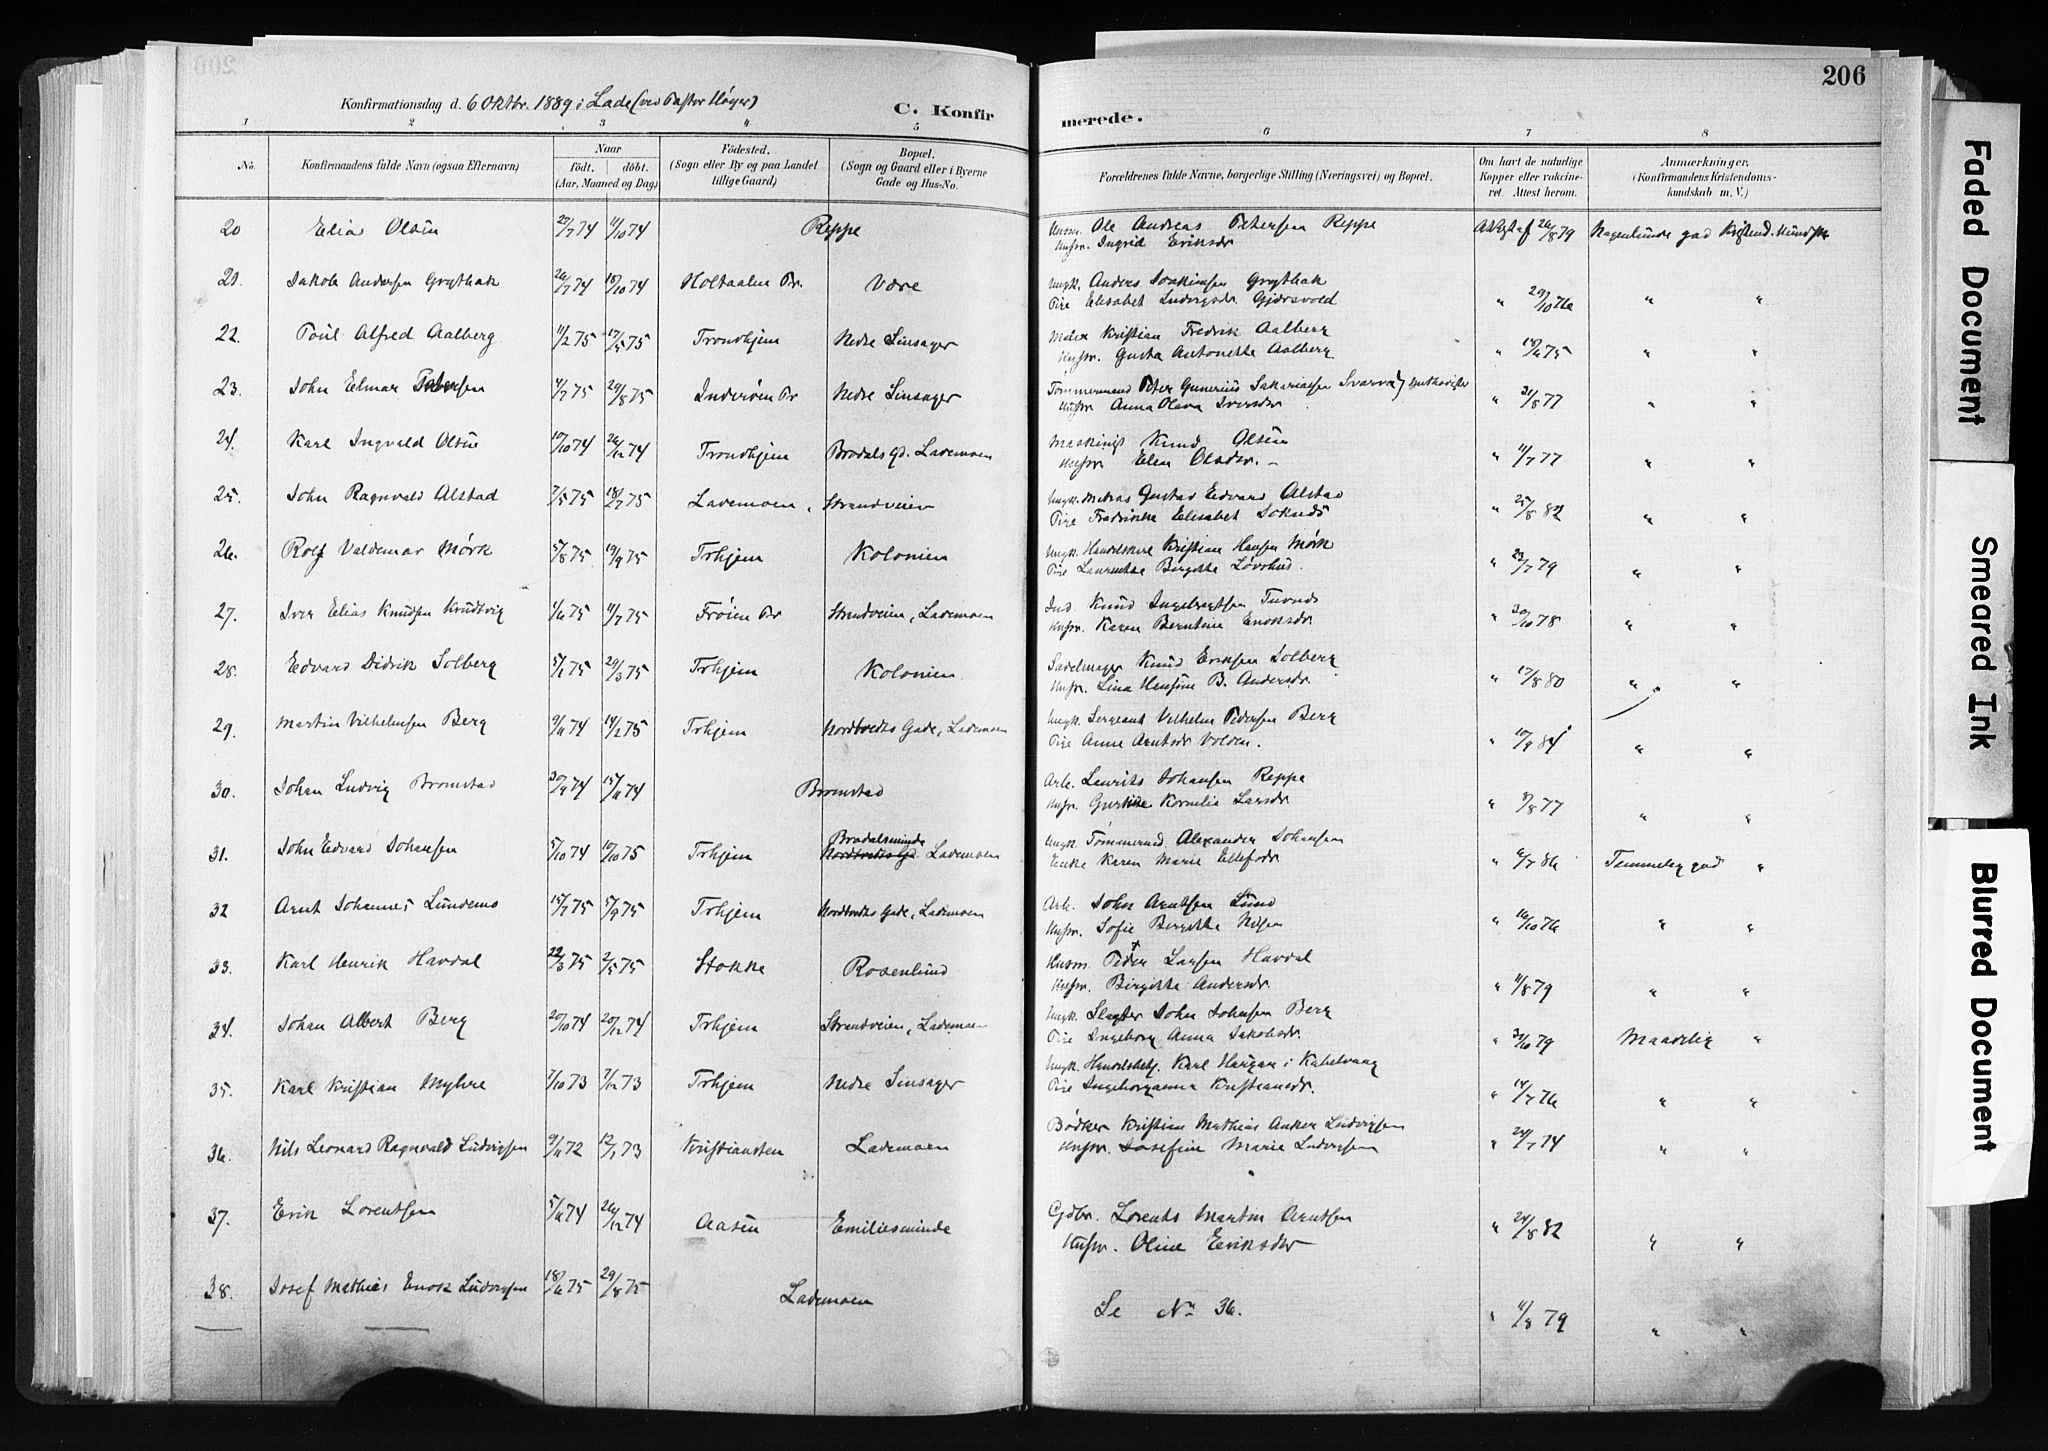 206
Konfirmationsdag d. 6 Oktbr. 1889 i Lade (ved Pastor Høyer)
C. Konfirmerede.
1 2 3 4 5 6 7 8
No. Konfirmandens fulde Navn (ogsaa Efternavn) Naar født. døbt. (Aar, Maaned og Dag) Födested. (Sogn eller By og paa Landet tillige Gaard) Bopæl. (Sogn og Gaard eller i Byerne Gade og Hus-No. Forældrenes fulde Navne, borgerlige Stilling (Næringsvei) og Bopæl. Om havt de naturlige Kopper eller vaccineret. Attest herom. Anmærkninger. (Konfirmandens Kristendomskundskab m. V.)
20 Elias Olsen 23/7 74 11/10 74 Reppe Husm. Ole Andreas Petersen Reppe
Hustr. Ingrid Eriksdr 26/8 79 god
21. Jakob Andersen Grytbak 26/7 74 18/10 74 Holtaalen Pr. Være Ungk. Anders Joakimsen Grytbak
Pige Elisabet Ludvigsdr. Gjersvold " 29/10 76 " "
22. Poul Alfred Aalberg 11/2 75 17/5 75 Trondhjem Nedre Linsager Maler Kristian Fredrik Aalberg
Hustr. Gusta Antonette Aalberg " 18/6 75 " "
23. John Elmar Petersen 4/7 75 29/8 75 Inderøen Pr Nedre Linsager Tømmermand Peter Gunerius Sakariasen
Hustr Anna Olava Iversdr " 31/8 77 " "
24. Karl Ingvald Olsen 10/10 74 26/12 74 Trondhjem Brodals Gd. Lademoen Maskinist Knud Olsen
Hustr. Elen Olsdr. " 11/7 77 " "
25. John Ragnvald Alstad 7/5 75 18/7 75 Lademoen Strandveien Ungk. Matros Gustav Edvard Alstad
Pige Fredrikke Elisabet " 25/8 82 " "
26. Rolf Valdemar Mørk 5/8 75 19/9 75 Trhjem Kolonien Ungk. Handelskar Kristian Hansen Mørk
Pige Laurentse Birgitte Løvolud. " 23/7 79 " "
27. Iver Elias Knudsen Knudtvig 1/6 75 11/7 75 Frøien Pr Strandveien, Lademoen Ind. Knud Ingebrigtsen
Hustr. Karen Berntine Enoksdr " 30/10 78 " "
28. Edvard Didrik Solberg 5/1 75 29/3 75 Trhjem Kolonien Sadelmager Knud Eriksen Solberg
Hustr. Lina Hansine B. Andersdr " 17/8 80 " "
29. Martin Vilhelmsen Berg 9/11 74 14/2 75 Trhjem Nordtvedts Gade, Lademoen Ungk. Sergeant Vilhelm Pedersen Berg
Pige Anne Arntsdr Volden. " 10/9 84 " "
30. Johan Ludvig Bromstad 20/9 74 15/11 74 Bromstad Arb. Laurits Johansen Reppe
Hustr. Kornelia Larsdr " 8/8 77 " "
31. John Edvard Johansen 5/10 74 10/10 75 Trhjem Brodalsminde Nordtvedts Gd. Lademoen Ungk. Tømmermd Alexander Johansen
Enke Karen Marie Ellefsdr " 6/7 86 Temmelig god "
32 Arnt Johannes Lundemo 15/7 75 5/9 75 Trhjem Nordtvedts Gade, Lademoen Arb. John Arntsen Lund
Hustr. Sofie Birgitte Nilsen " 16/10 76 " "
33. Karl Henrik Havdal 22/3 75 2/5 75 Stokke Rosenlund Husm. Peder Larsen Havdal
Hustr. Birgitte Andersdr. " 11/8 79 " "
34. Johan Albert Berg 20/10 74 20/12 74 Trhjem Strandveien, Lademoen Ungk. Slagter John Johnsen Berg
Pige Ingeborg Anna Jakobsdr. " 31/10 79 Maadelig "
35. Karl Kristian Myhre 1/10 73 7/12 73 Trhjem Nedre Linsager Ungk. Handelsbetj. Karl Haugan i Kabelvaag
Pige Ingeborganna Kristiansdr. " 14/7 76 " "
36. Nils Leonard Ragnvald Ludvigsen 9/11 72 12/1 73 Kristiansten Lademoen Bødker Kristian Mathias Anker Ludvigsen
Hustr. Josefine Marie Ludvigsen " 24/7 74 " "
37. Erik Lorentsen 5/11 74 26/12 74 Aasen Emiliesminde Gdbr. Lorents Martin Arntsen
Hustr. Oline Eriksdr " 24/8 82 " "
38. Josef Mathias Enok Ludvigsen 18/6 75 29/8 75 Lademoen Se No 36. " 11/8 79 " "
Faded Document
Smeared Ink
Blurred Document